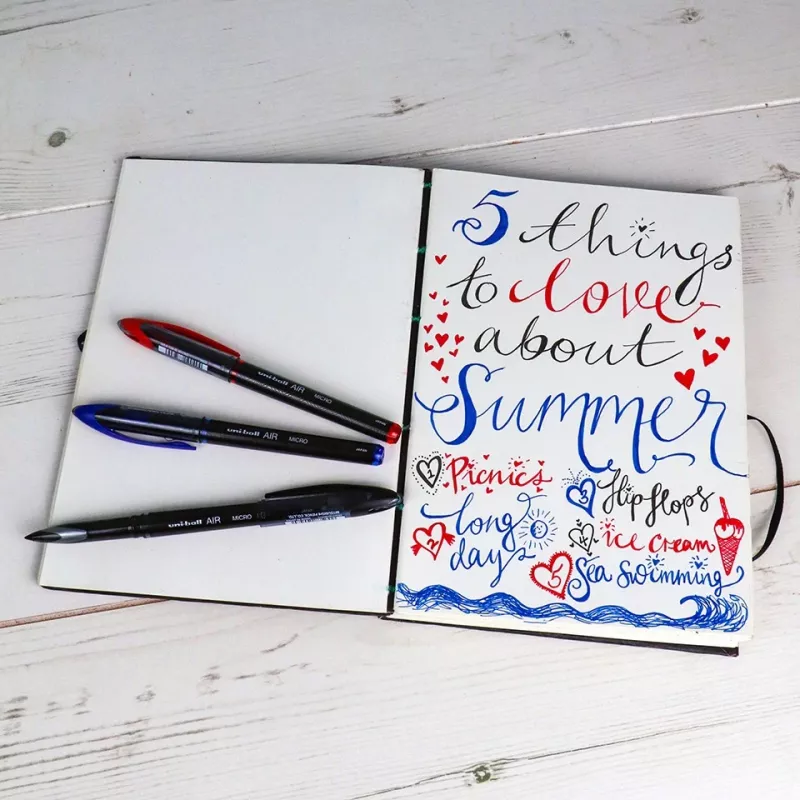 5 things
to love
about
Summer
1 Picnics
2 Long days
3 Flip flops
4 ice cream
5 Sea swimming
uni-ball AIR MICRO
uni-ball AIR MICRO
uni-ball AIR MICRO